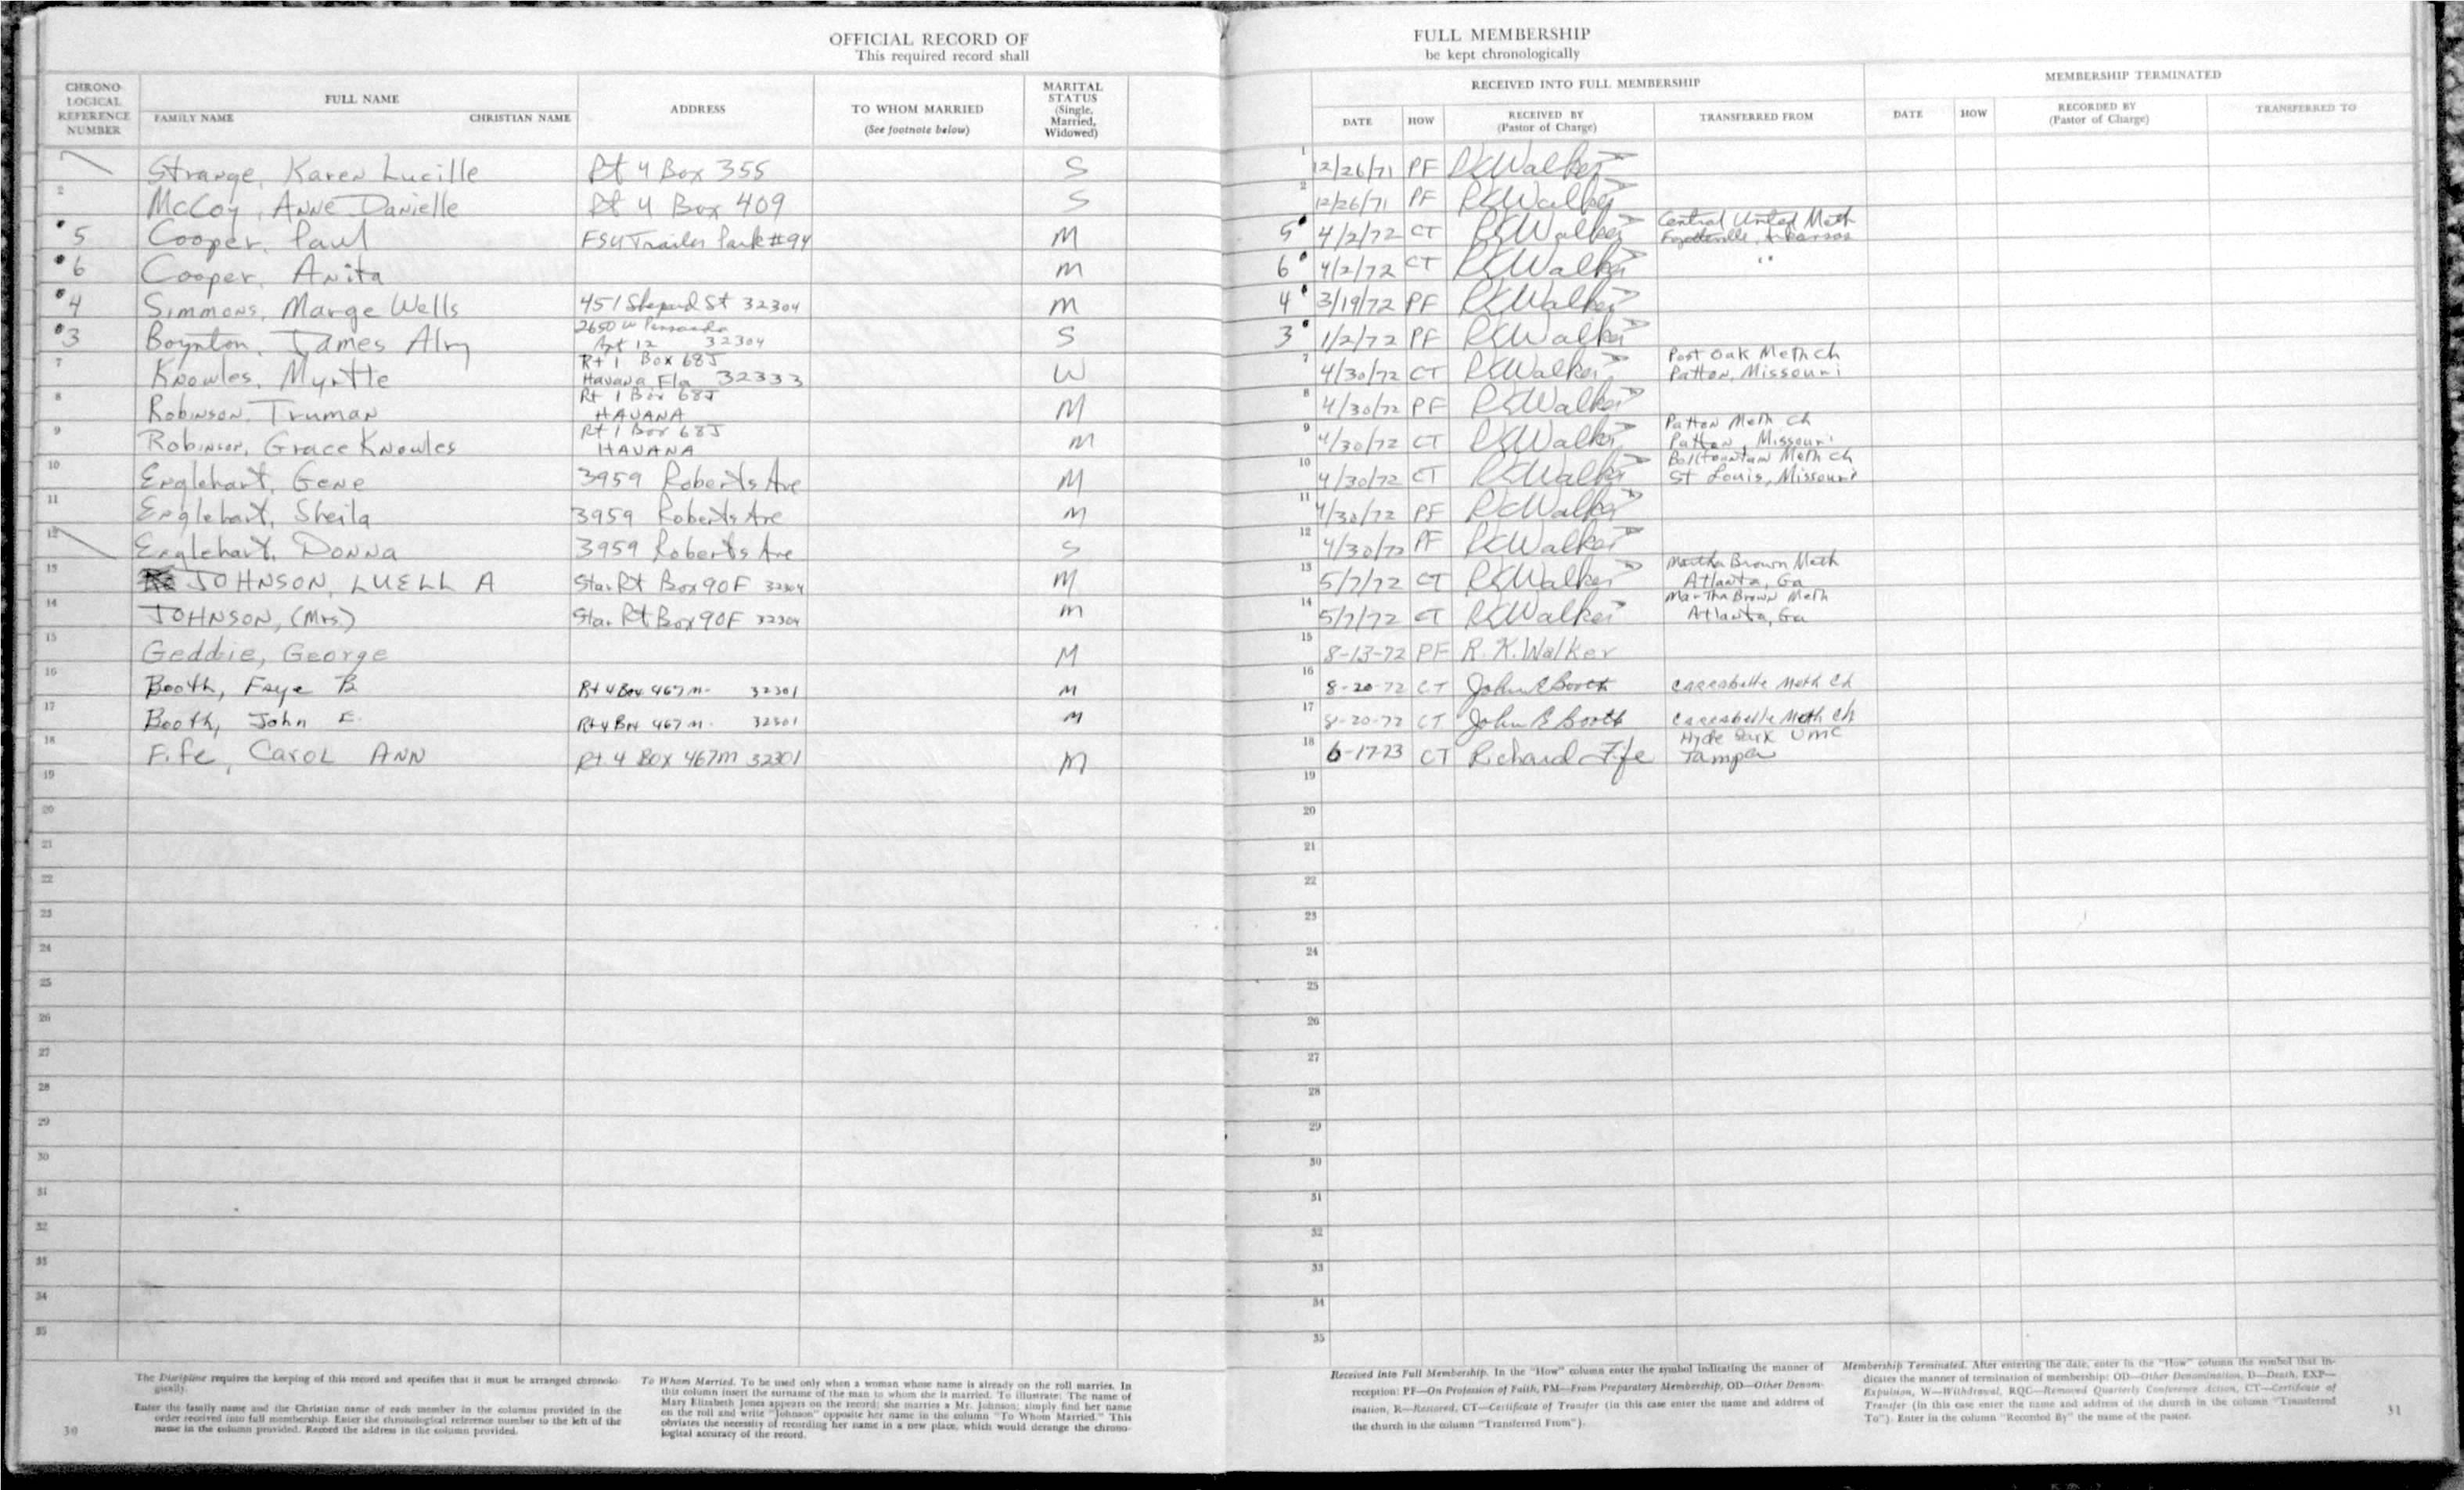 OFFICIAL RECORD OF
This required record shall
FULL MEMBERSHIP
be kept chronologically
CHRONO
LOGICAL
REFERENCE
NUMBER
FULL NAME
FAMILY NAME CHRISTIAN NAME
ADDRESS
TO WHOM MARRIED
(See footnote below)
MARITAL
STATUS
(Single,
Married,
Widowed)
RECEIVED INTO FULL MEMBERSHIP
DATE HOW RECEIVED BY
(Pastor of Charge)
TRANSFERRED FROM
MEMBERSHIP TERMINATED
DATE HOW RECORDED BY
(Pastor of Charge)
TRANSFERRED TO
Strange, Karen Lucille Rt 4 Box 355 S 1 12/26/71 PF RKWalker
2 McCoy, Anne Danielle Rt 4 Box 409 S 2 12/26/71 PF RKWalker
5 Cooper, Paul FSU Trailer Park #94 M 5 4/2/72 CT RKWalker Central United Meth
Fayetteville, Arkansas
6 Cooper, Anita M 6 4/2/72 CT RKWalker "
4 Simmons, Marge Wells 451 Shepard St 32304 M 4 3/19/72 PF RKWalker
3 Boynton, James 2650 W Pensacola
Apt 12 32304 S 3 1/2/72 PF RKWalker
7 Knowles, Myrtle Rt 1 Box 68J
Havana, Fla 32333 W 7 4/30/72 CT RKWalker Post Oak Meth ch
Patton, Missouri
8 Robinson, Truman Rt 1 Box 68J
HAVANA M 8 4/30/72 PF RKWalker
9 Robinson, Grace Knowles Rt 1 Box 68J
HAVANA M 9 4/30/72 CT RKWalker Patton Meth Ch
Patton, Missouri
10 Englehart, Gene 3959 Roberts Ave M 10 4/30/72 CT RKWalker Meth ch
St Louis, Missouri
11 Englehart, Sheila 3959 Roberts Ave M 11 4/30/72 PF RKWalker
12 Englehart, Donna 3959 Roberts Ave S 12 4/30/72 PF RKWalker
13 JOHNSON, LUELL A Sta. Rt Box 90F 32304 M 13 5/7/72 CT RKWalker Martha Brown Meth
Atlanta, Ga
14 JOHNSON, (Mrs) Sta. Rt Box 90F 32304 M 14 5/7/72 CT RKWalker Martha Brown Meth
Atlanta, Ga
15 Geddie, George M 15 8-13-72 PF R. K. Walker
16 Booth, Faye B Rt 4 Box 467 M. 32301 M 16 8-20-72 CT John E Booth Carrabelle Meth Ch
17 Booth, John E. Rt 4 Box 467 M. 32301 M 17 8-20-72 CT John E Booth Carrabelle Meth Ch
18 Fife, Carol Ann Rt 4 Box 467M 32301 M 18 6-17-23 CT Richard Fife Hyde Park UMC
Tampa
19 19
20 20
21 21
22 22
23 23
24 24
25 25
26 26
27 27
28 28
29 29
30 30
31 31
32 32
33 33
34 34
35 35
The Discipline requires the keeping of this record and specifies that it must be arranged chronolo-
gically.
Enter the family name and the Christian name of each member in the columns provided in the
order received into full membership. Enter the chronological reference number to the left of the
name in the column provided. Record the address in the column provided.
30
To Whom Married. To be used only when a woman whose name is already on the roll marries. In
this column insert the surname of the man to whom she is married. To illustrate: The name of
Mary Elizabeth Jones appears on the record; she marries a Mr. Johnson; simply find her name
on the roll and write "Johnson" opposite her name in the column "To Whom Married." This
obviates the necessity of recording her name in a new place, which would derange the chrono-
logical accuracy of the record.
Received into Full Membership. In the "How" column enter the symbol indicating the manner of
reception: PF—On Profession of Faith, PM—From Preparatory Membership, OD—Other Denom-
ination, R—Restored, CT—Certificate of Transfer (in this case enter the name and address of
the church in the column "Transferred From").
Membership Terminated. After entering the date, enter in the "How" column the symbol that in-
dicates the manner of termination of membership: OD—Other Denomination, D—Death, EXP—
Expulsion, W—Withdrawal, RQC—Removed Quarterly Conference Action, CT—Certificate of
Transfer (in this case enter the name and address of the church in the column "Transferred
To"). Enter in the column "Recorded By" the name of the pastor.
31